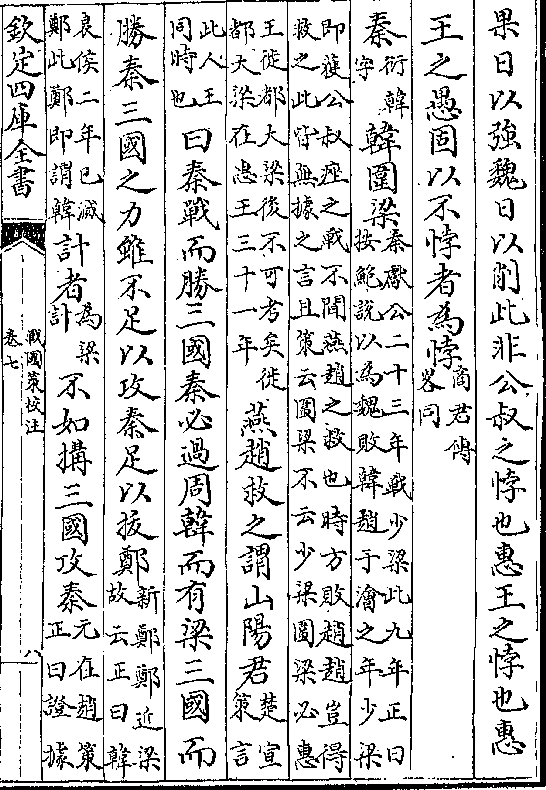 果日以強魏日以削此非公叔之悖也惠王之悖也惠
王之愚固以不悖者為悖商君傳畧同
秦衍韓字韓圍梁秦獻公二十三年戰少梁此九年正曰按鮑說以為魏敗韓趙于澮之年少梁
即獲公叔痤之戰不聞燕趙之救也時方敗趙趙豈得救之此皆無據之言且策云圍梁不云少梁圍梁必惠
王徙都大梁後不可考矣徙都大梁在惠王三十一年燕趙救之謂山陽君楚宣策言
此人王同時也曰秦戰而勝三國秦必過周韓而有梁三國而
勝秦三國之力雖不足以攻秦足以拔鄭新鄭鄭近梁故云正曰韓
哀侯二年已滅鄭此鄭即謂韓計者為梁計不如搆三國攻秦元在趙策正曰證據
欽定四庫全書
戰國策校注
卷七
八